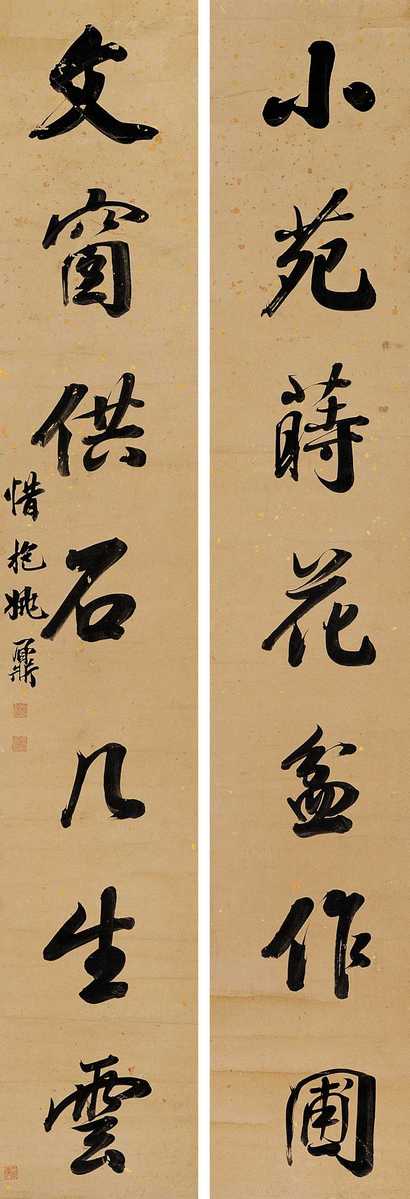 小苑蒔花盆作圃
文窗供石几生雲
惜抱姚鼐